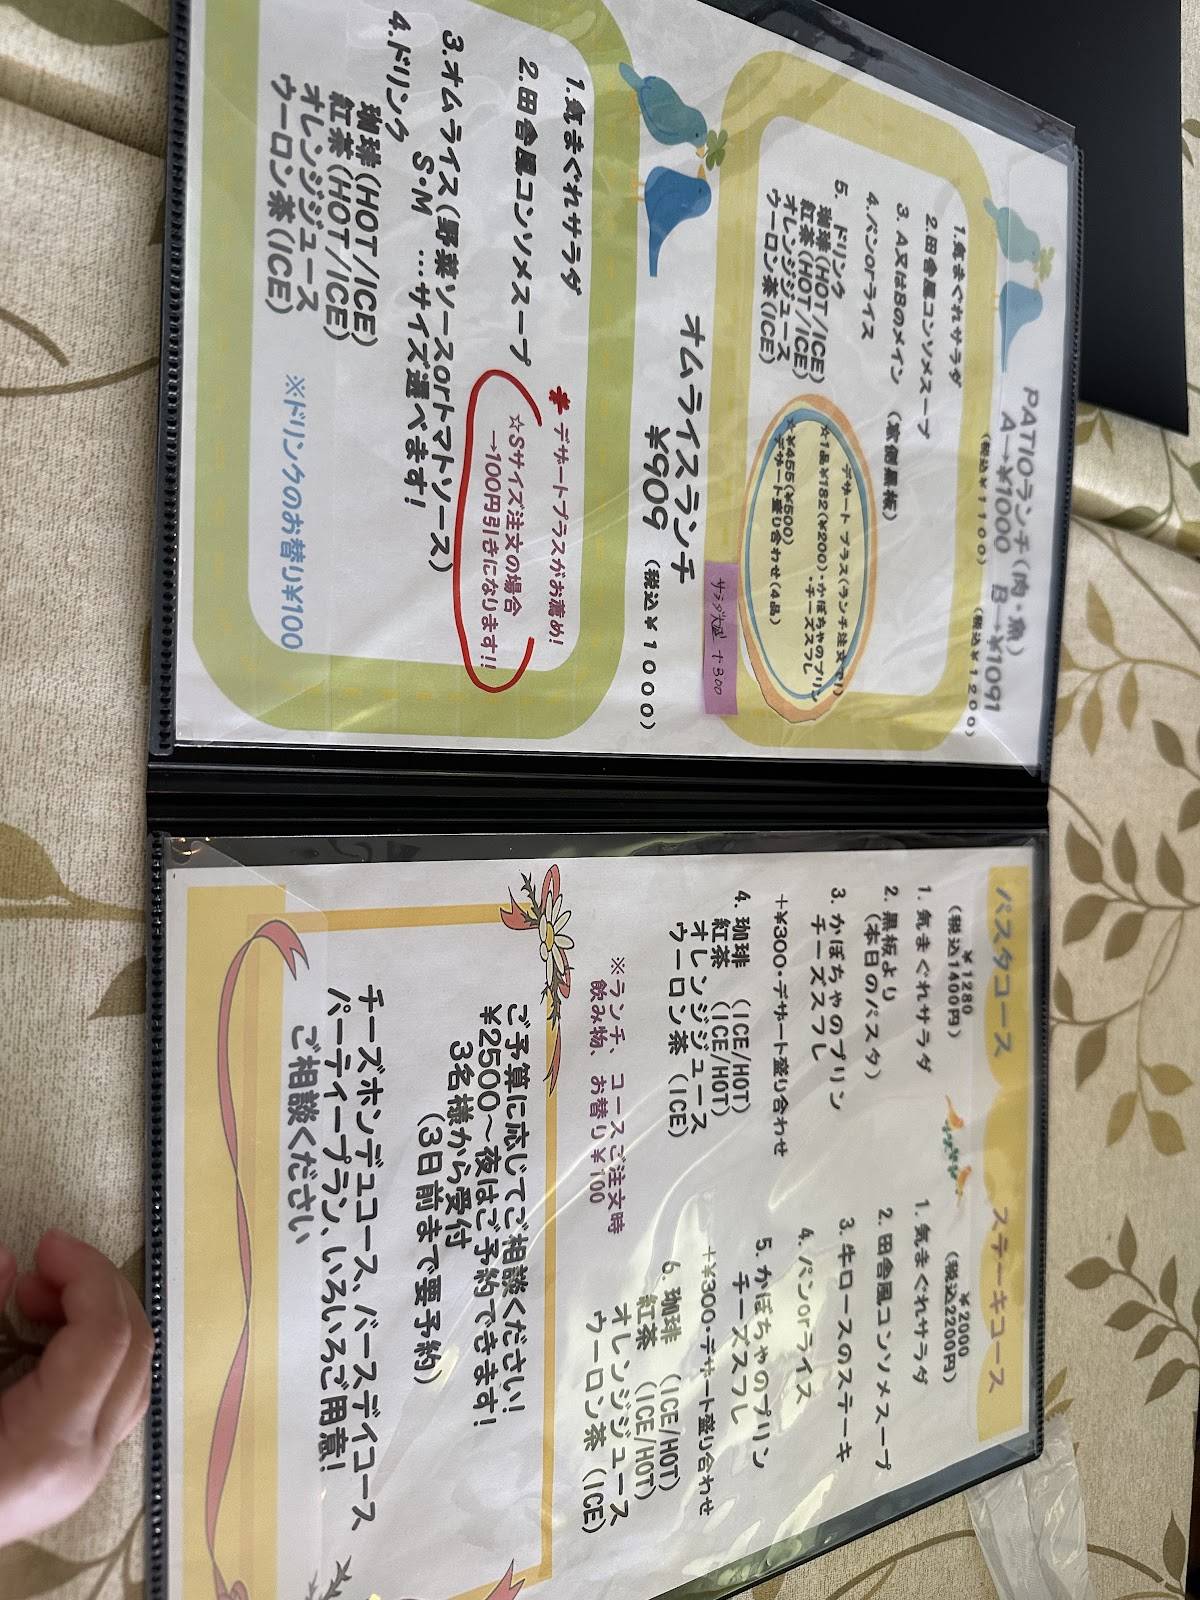 PATIOランチ(肉・魚)
A→¥1000 B→¥1091
(税込¥1100) (税込¥1200)
1.気まぐれサラダ
2.田舎風コンソメスープ
3.A又はBのメイン
4.パンorライス
5.ドリンク
珈琲(HOT/ICE)
紅茶(HOT/ICE)
オレンジジュース
ウーロン茶(ICE)
デザート プラス(ランチ注文
☆1品¥182(¥200)・かぼちゃのプリン
・チーズスフレ
☆¥455(¥500)
デザート盛り合わせ(4品)
サラダ大盛 +300
オムライスランチ
¥909 (税込¥1000)
1.気まぐれサラダ
2.田舎風コンソメスープ
3.オムライス(野菜ソースorトマトソース)
S・M …サイズ選べます!
4.ドリンク
珈琲(HOT/ICE)
紅茶(HOT/ICE)
オレンジジュース
ウーロン茶(ICE)
デザートプラスがお薦め!
☆Sサイズ注文の場合
→100円引きになります!!
※ドリンクのお替り¥100
パスタコース
¥1280
(税込1400円)
1.気まぐれサラダ
2.黒板より
(本日のパスタ)
3.かぼちゃのプリン
チーズスフレ
+¥300・デザート盛り合わせ
4.珈琲 (ICE/HOT)
紅茶 (ICE/HOT)
オレンジジュース
ウーロン茶 (ICE)
ステーキコース
¥2000
(税込2200円)
1.気まぐれサラダ
2.田舎風コンソメスープ
3.牛ロースのステーキ
4.パンorライス
5.かぼちゃのプリン
チーズスフレ
+¥300・デザート盛り合わせ
6.珈琲 (ICE/HOT)
紅茶 (ICE/HOT)
オレンジジュース
ウーロン茶 (ICE)
※ランチ、コースご注文時
飲み物、お替り¥100
ご予算に応じてご相談ください!
¥2500～夜はご予約できます!
3名様から受付
(3日前まで要予約)
チーズホンデュコース、バースデイコース
パーティープラン、いろいろご用意!
ご相談ください